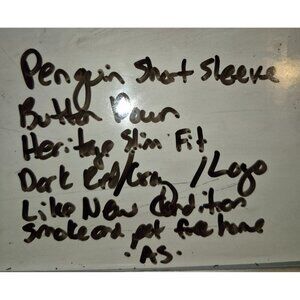 Penguin Short Sleeve
Button Down
Heritage Slim Fit
Dark Red/Gray/Logo
Like New Condition
Smoke and pet free home
·AS·